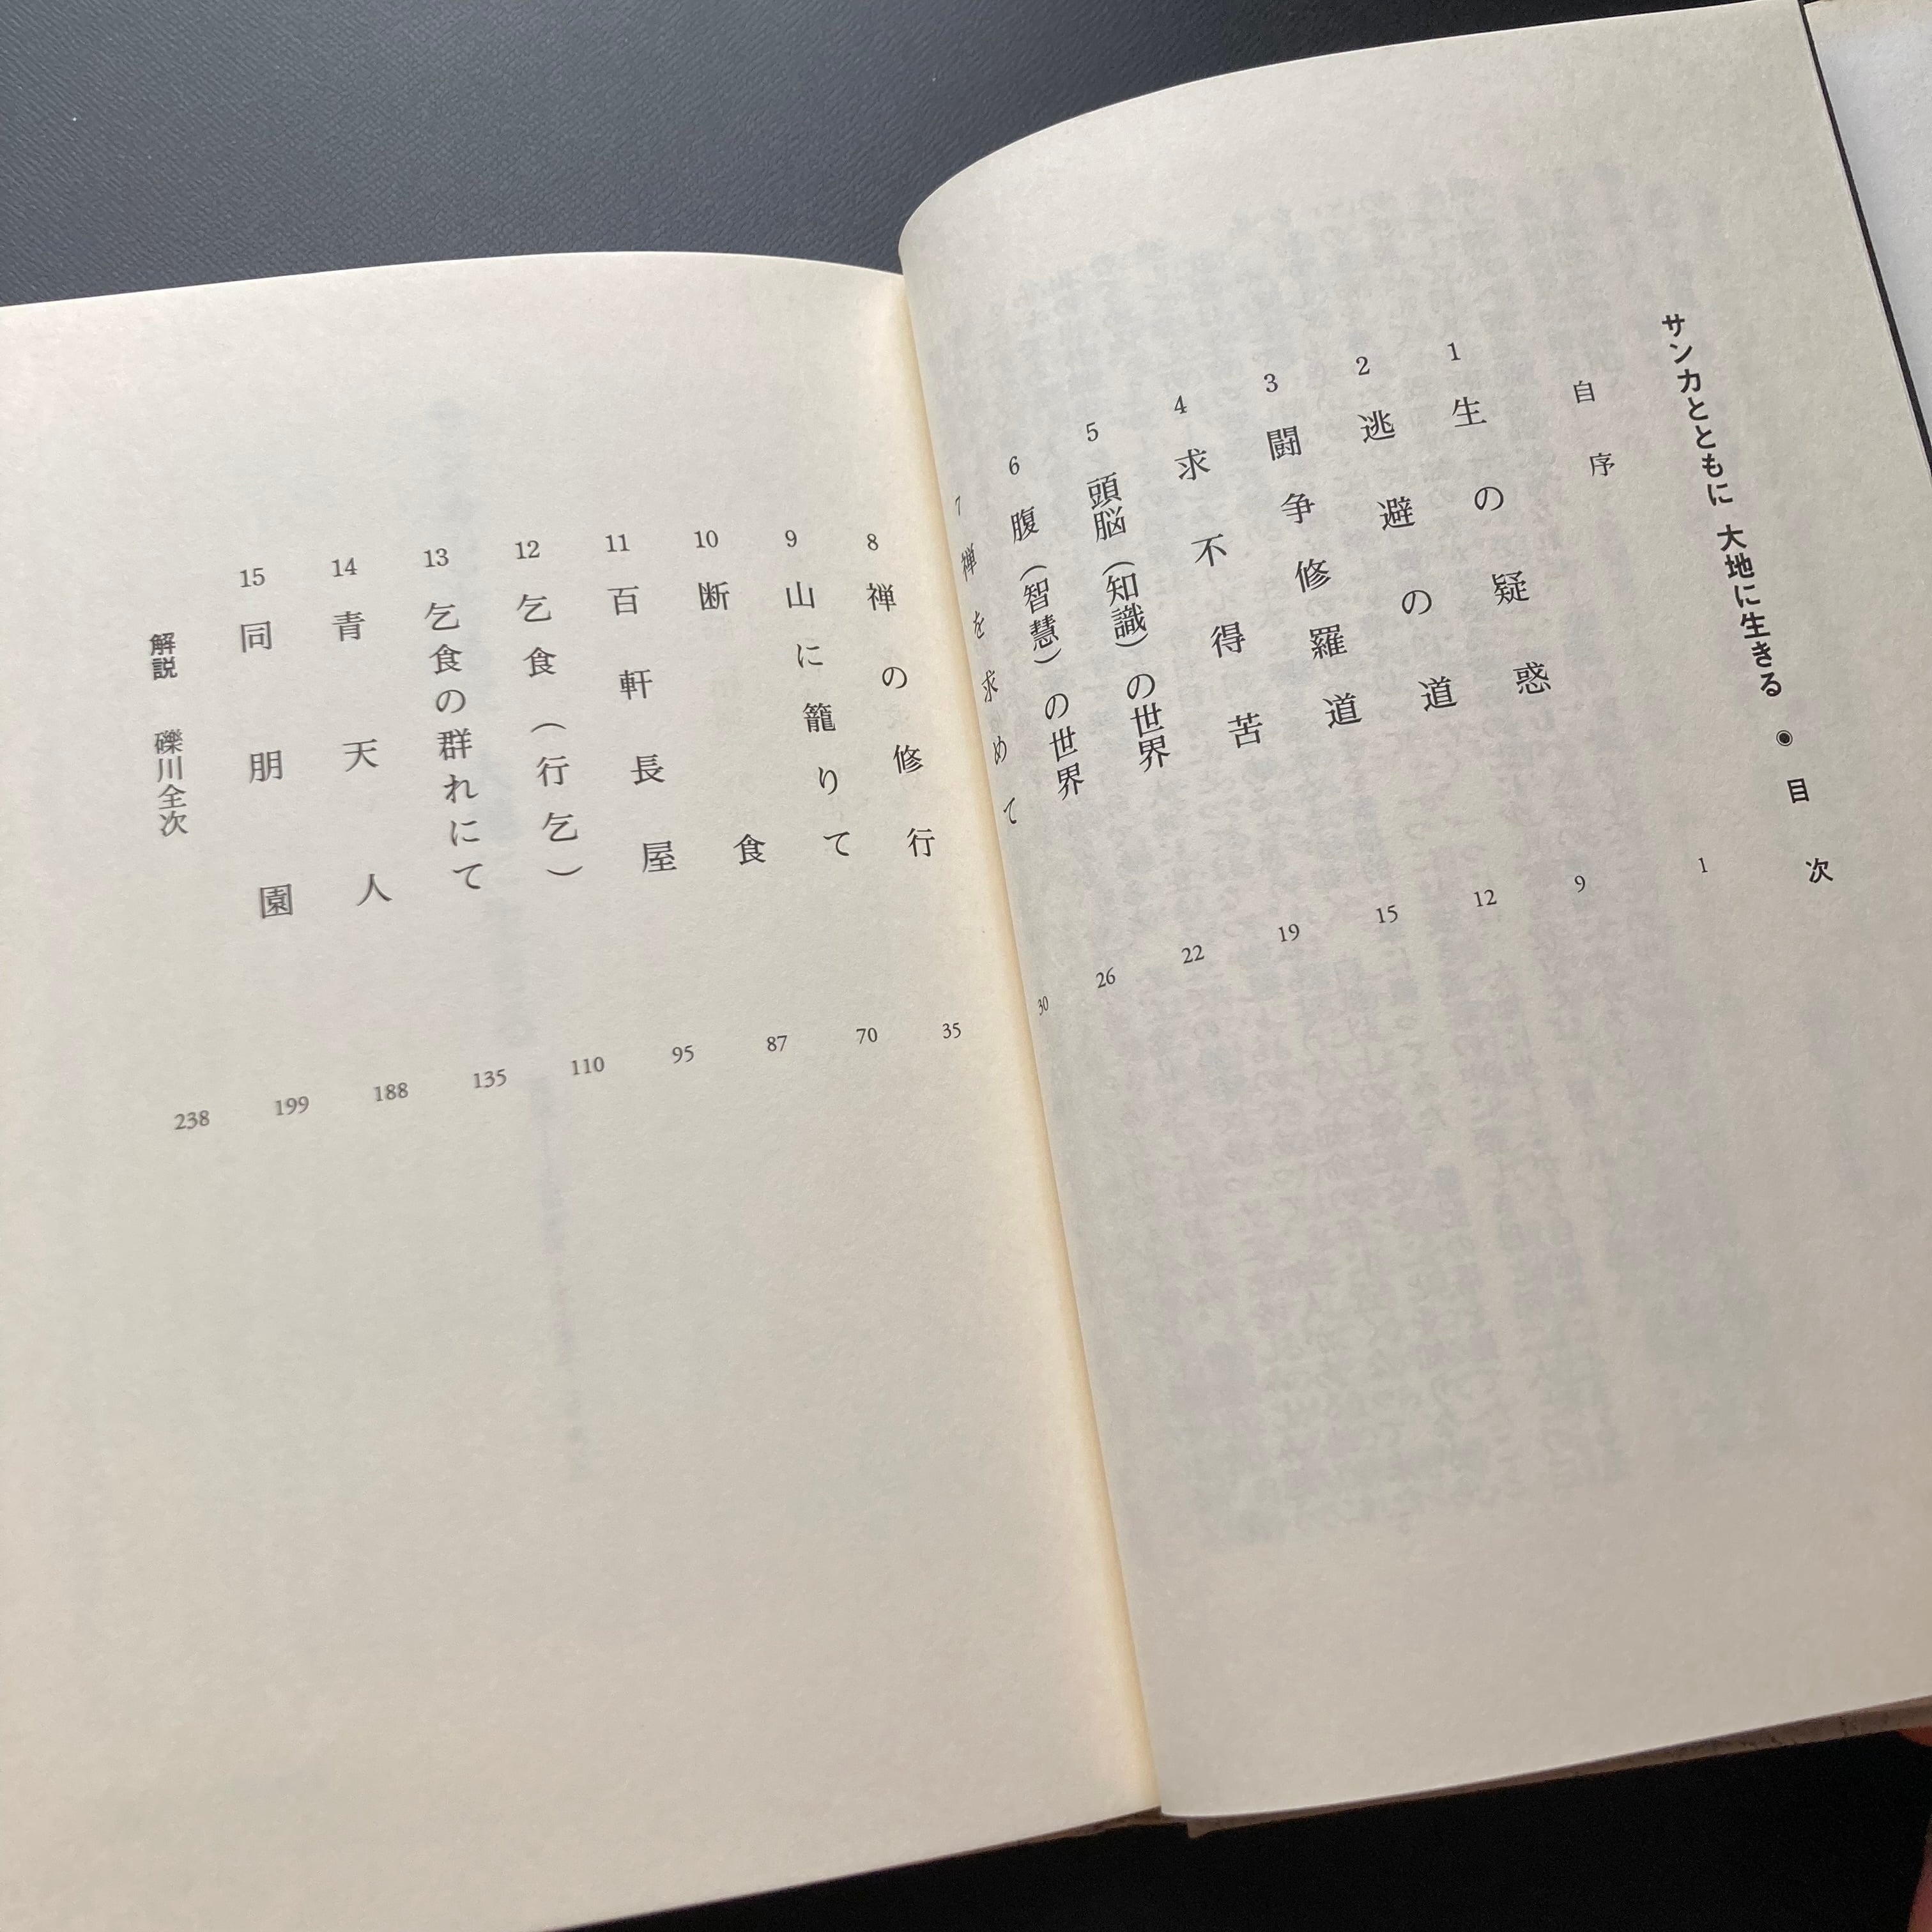 サンカとともに 大地に生きる ◉ 目次
自序 1
1 生の疑惑 9
2 逃避の道 12
3 闘争修羅道 15
4 求不得苦 19
5 頭脳(知識)の世界 22
6 腹(智慧)の世界 26
7 禅を求めて 30
8 禅の修行 35
9 山に籠りて 70
10 断食 87
11 百軒長屋 95
12 乞食(行乞) 110
13 乞食の群れにて 135
14 青天人 188
15 同朋園 199
解説 礫川全次 238